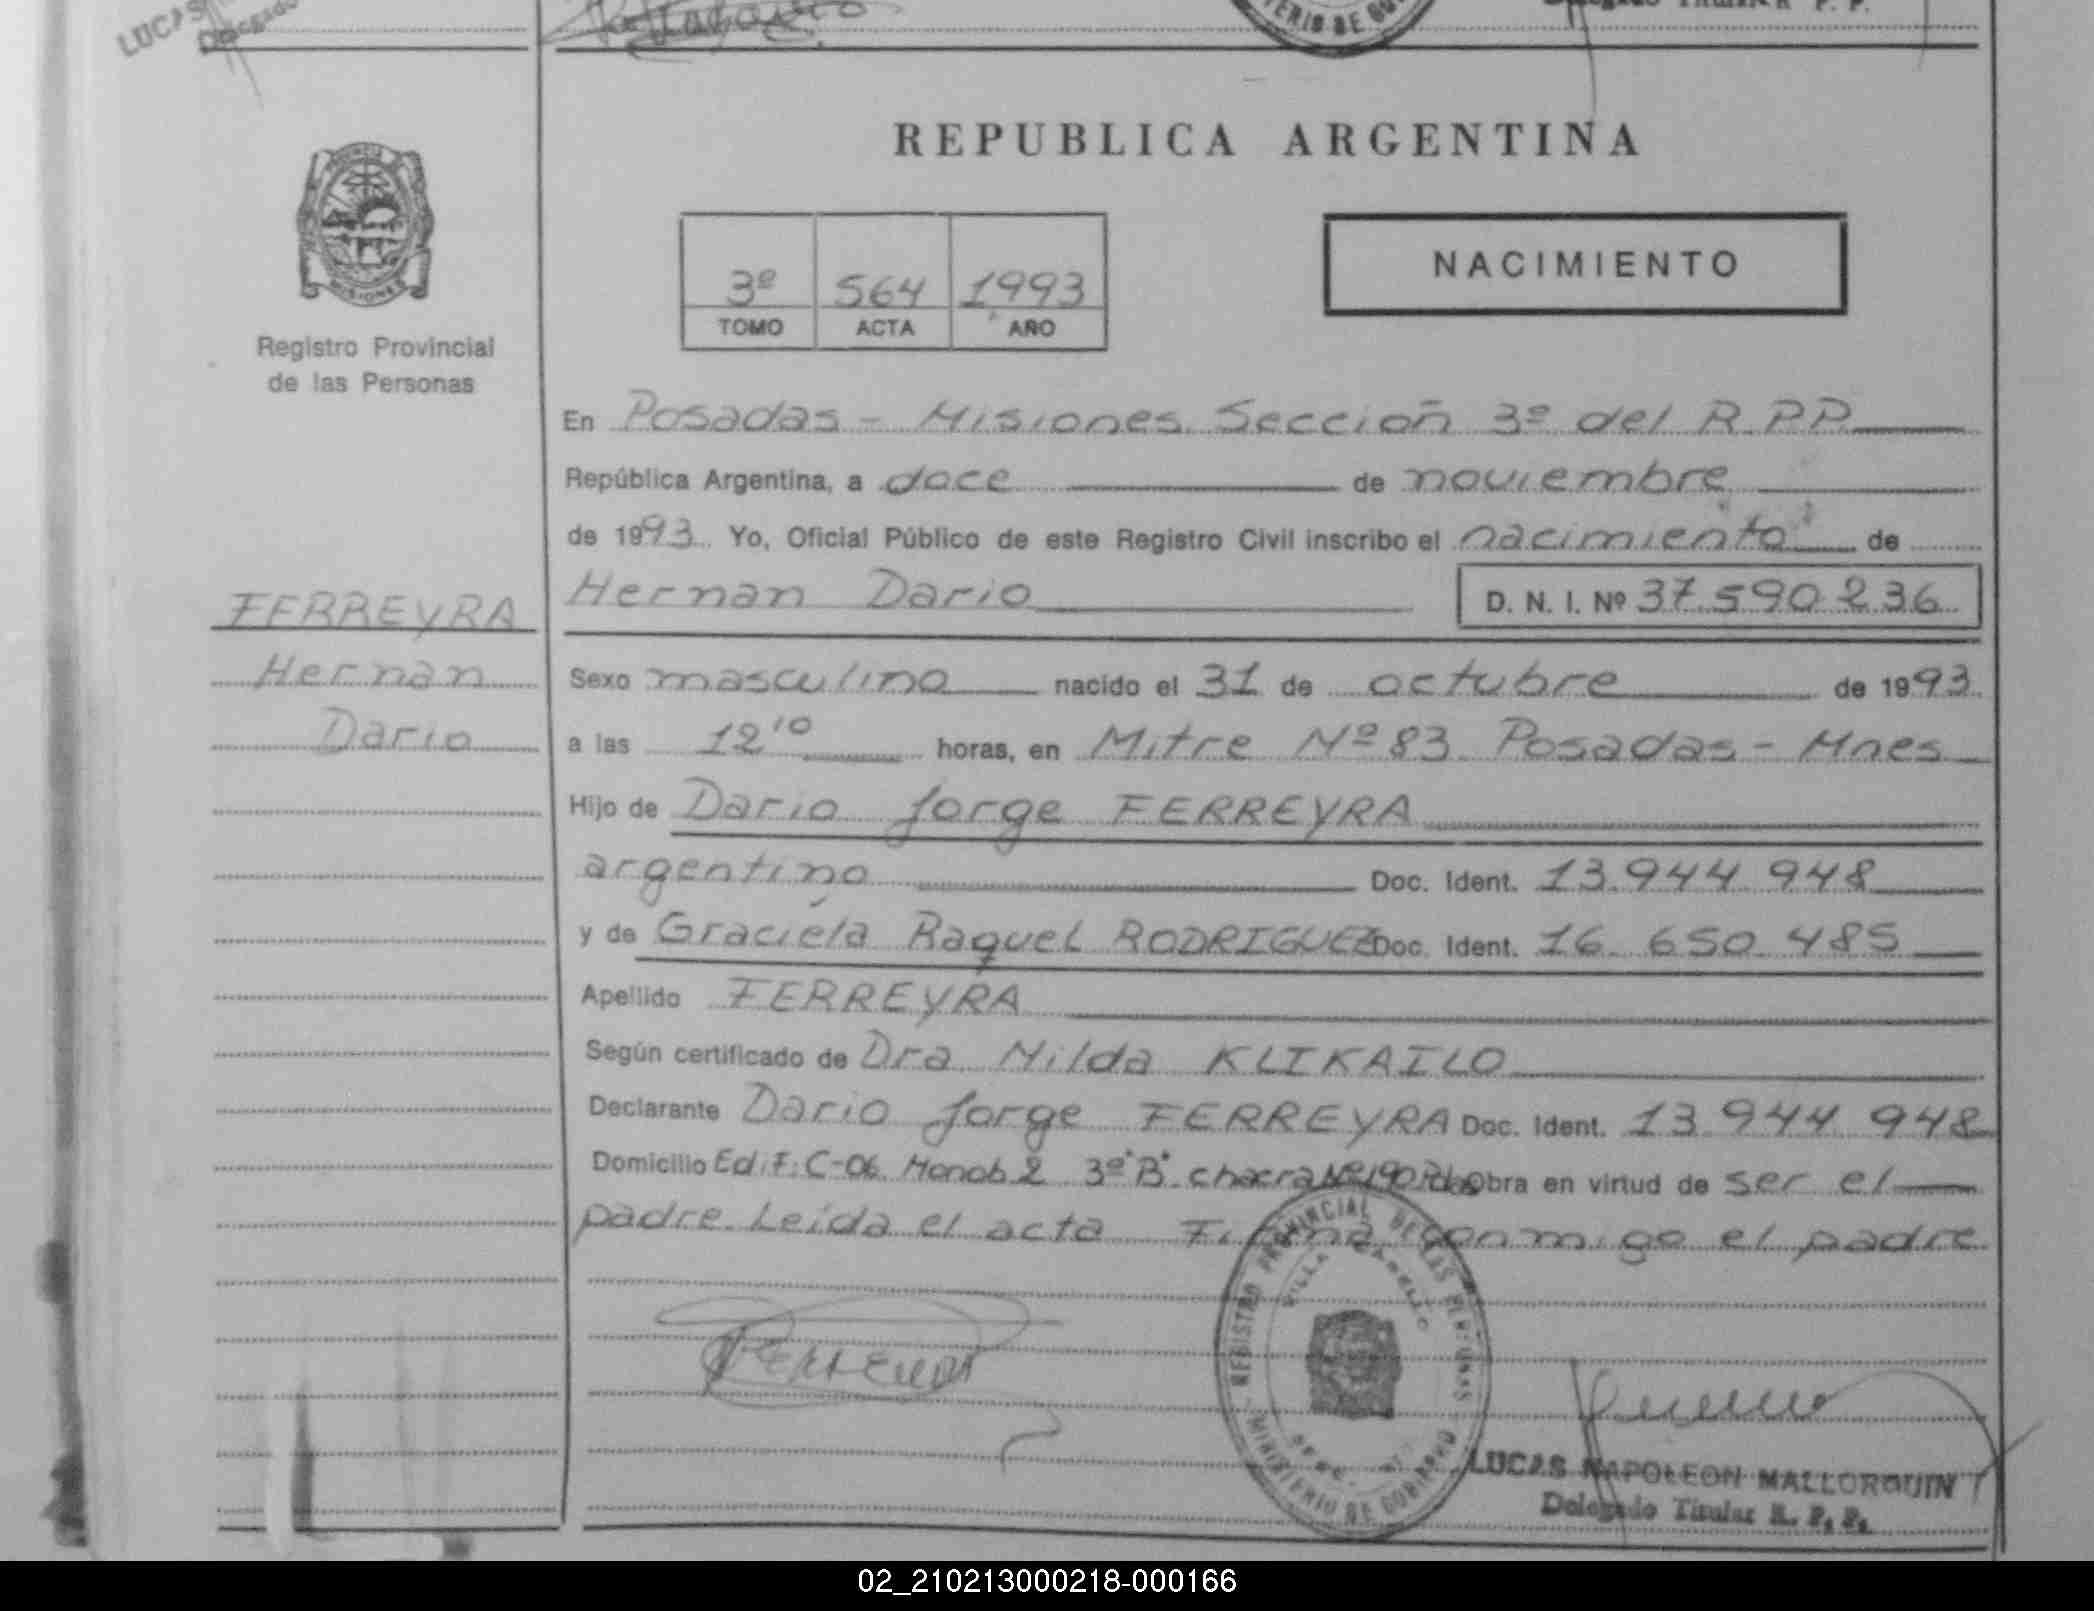 LUCAS
Delegado Titular R. P. P.
TERIO DE GO
REPUBLICA ARGENTINA
PROVINCIA
MISIONES
3º 564 1993
TOMO ACTA AÑO
NACIMIENTO
Registro Provincial
de las Personas
En Posadas - Misiones Sección 3º del R.P.P.
República Argentina, a doce de noviembre
de 1993 Yo, Oficial Público de este Registro Civil inscribo el nacimiento de
Hernan Dario D. N. I. Nº 37.590.236
FERREYRA
Hernan
Dario
Sexo masculino nacido el 31 de octubre de 1993
a las 12 10 horas, en Mitre Nº 83 Posadas - Mnes
Hijo de Dario Jorge FERREYRA
argentino Doc. Ident. 13.944.948
y de Graciela Raquel RODRIGUEZ Doc. Ident. 16.650.485
Apellido FERREYRA
Según certificado de Dra Nilda KLIKAILO
Declarante Dario Jorge FERREYRA Doc. Ident. 13.944.948
Domicilio Edif. C-06 Monob. 2 3º "B" chacra Nº 190 Pdas Obra en virtud de ser el
padre. Leída el acta Firma conmigo el padre
REGISTRO PROVINCIAL DE LAS PERSONAS
VILLA CABELLO
MINISTERIO DE GOBIERNO
LUCAS NAPOLEON MALLORQUIN
Delegado Titular R. P. P.
02_210213000218-000166